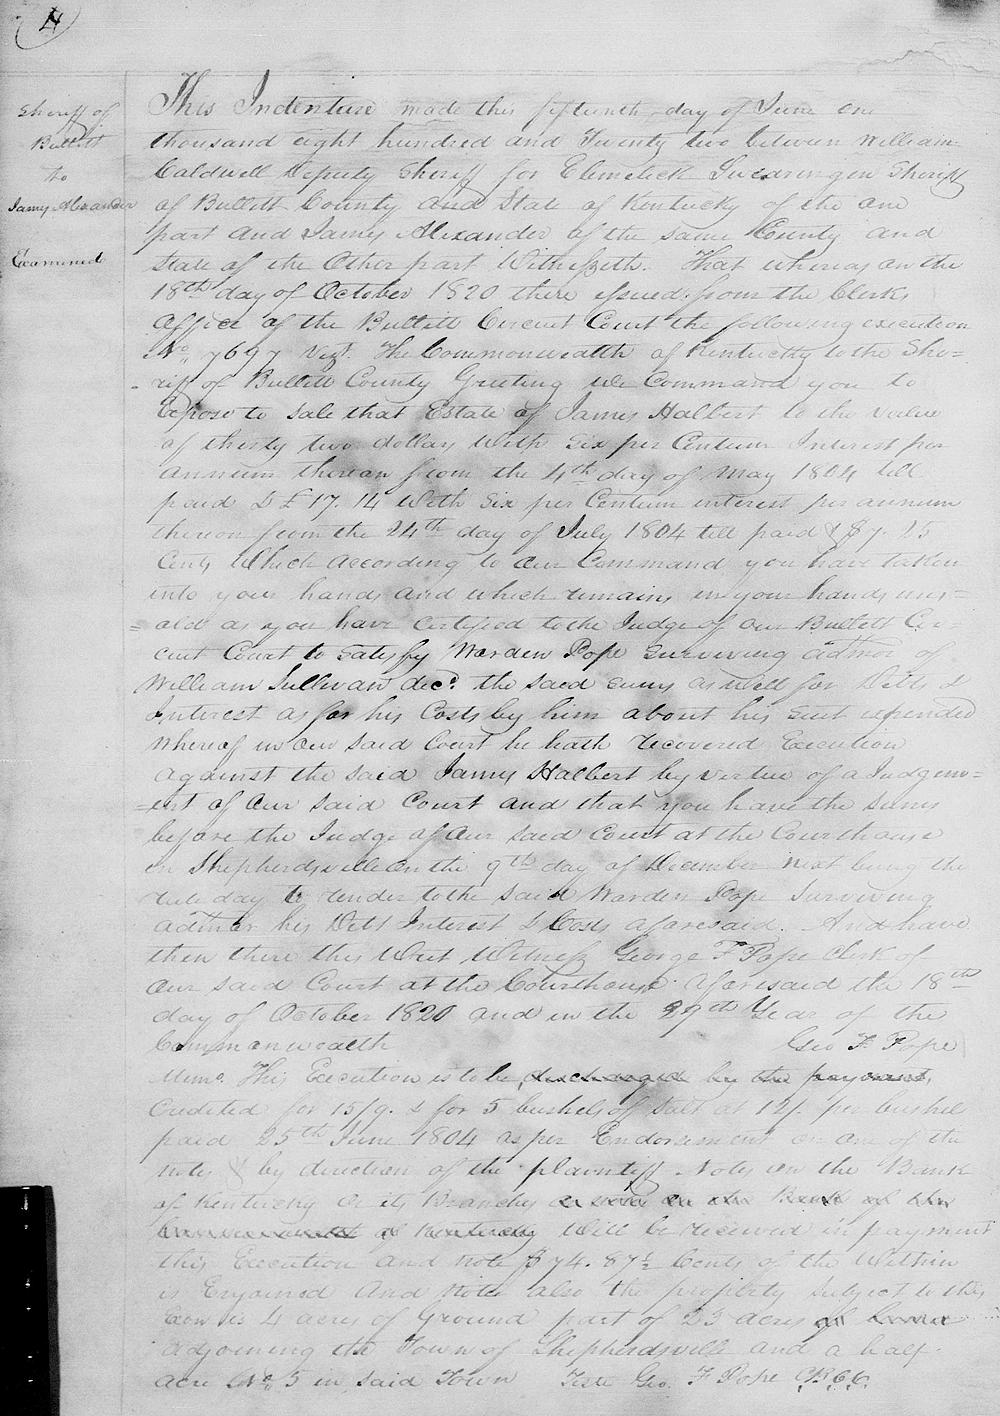 4
Sheriff of
Bullitt
to
James Alexander
Examined
This Indenture made this fifteenth day of June one
thousand eight hundred and Twenty two between William
Caldwell Deputy Sheriff for Elimelick Swearingen Sheriff
of Bullitt County and State of Kentucky of the one
part and James Alexander of the same County and
State of the Other part Witnesseth. That whereas on the
18th day of October 1820 there issued from the Clerks
office of the Bullitt Circuit Court the following execution
No. 7697 Vizt. The Commonwealth of Kentucky to the She=
=riff of Bullitt County Greeting We Command you to
Expose to sale that Estate of James Halbert to the value
of thirty two dollars With Six per Centum Interest per
annum thereon from the 4th day of May 1804 till
paid & £17.14 With Six per Centum interest per annum
thereon from the 24th day of July 1804 till paid & $7.25
Cents Which according to our Command you have taken
into your hands and which remains in your hands uns=
=old as you have Certified to the Judge of our Bullitt Cir=
cuit Court to satisfy Warden Pope surviving admor of
William Sullivan decd. the said sums as well for Debts &
Interest as for his Costs by him about his suit expended
Whereof in our said Court he hath recovered Execution
against the said James Halbert by virtue of a Judgem=
=ent of our said Court and that you have the sums
before the Judge of our said Court at the Courthouse
in Shepherdsville on the 9th day of December next being the
rule day to render to the said Warden Pope Surviving
admor his Debt Interest & Costs aforesaid. And have
then there this Writ Witness George F Pope Clerk of
our said Court at the Courthouse aforesaid the 18th
day of October 1820 and in the 29th Year of the
Commonwealth Geo F. Pope
Memo. This Execution is to be discharged by the payment
Credited for 15/9. & for 5 bushels of Salt at 12/. per bushel
paid 25th June 1804 as per Endorsement on one of the
notes & by direction of the plaintiff Notes on the Bank
of Kentucky or its Branches or notes on the Bank of the
Commonwealth of Kentucky Will be received in payment
this Execution and note $74.87½ Cents of the Within
is Enjoined And Note also the property subject to this
Exon is 4 acres of Ground part of 23 acres of land
adjoining the Town of Shepherdsville and a half
acre No. 5 in said Town Teste Geo. F Pope CBCC